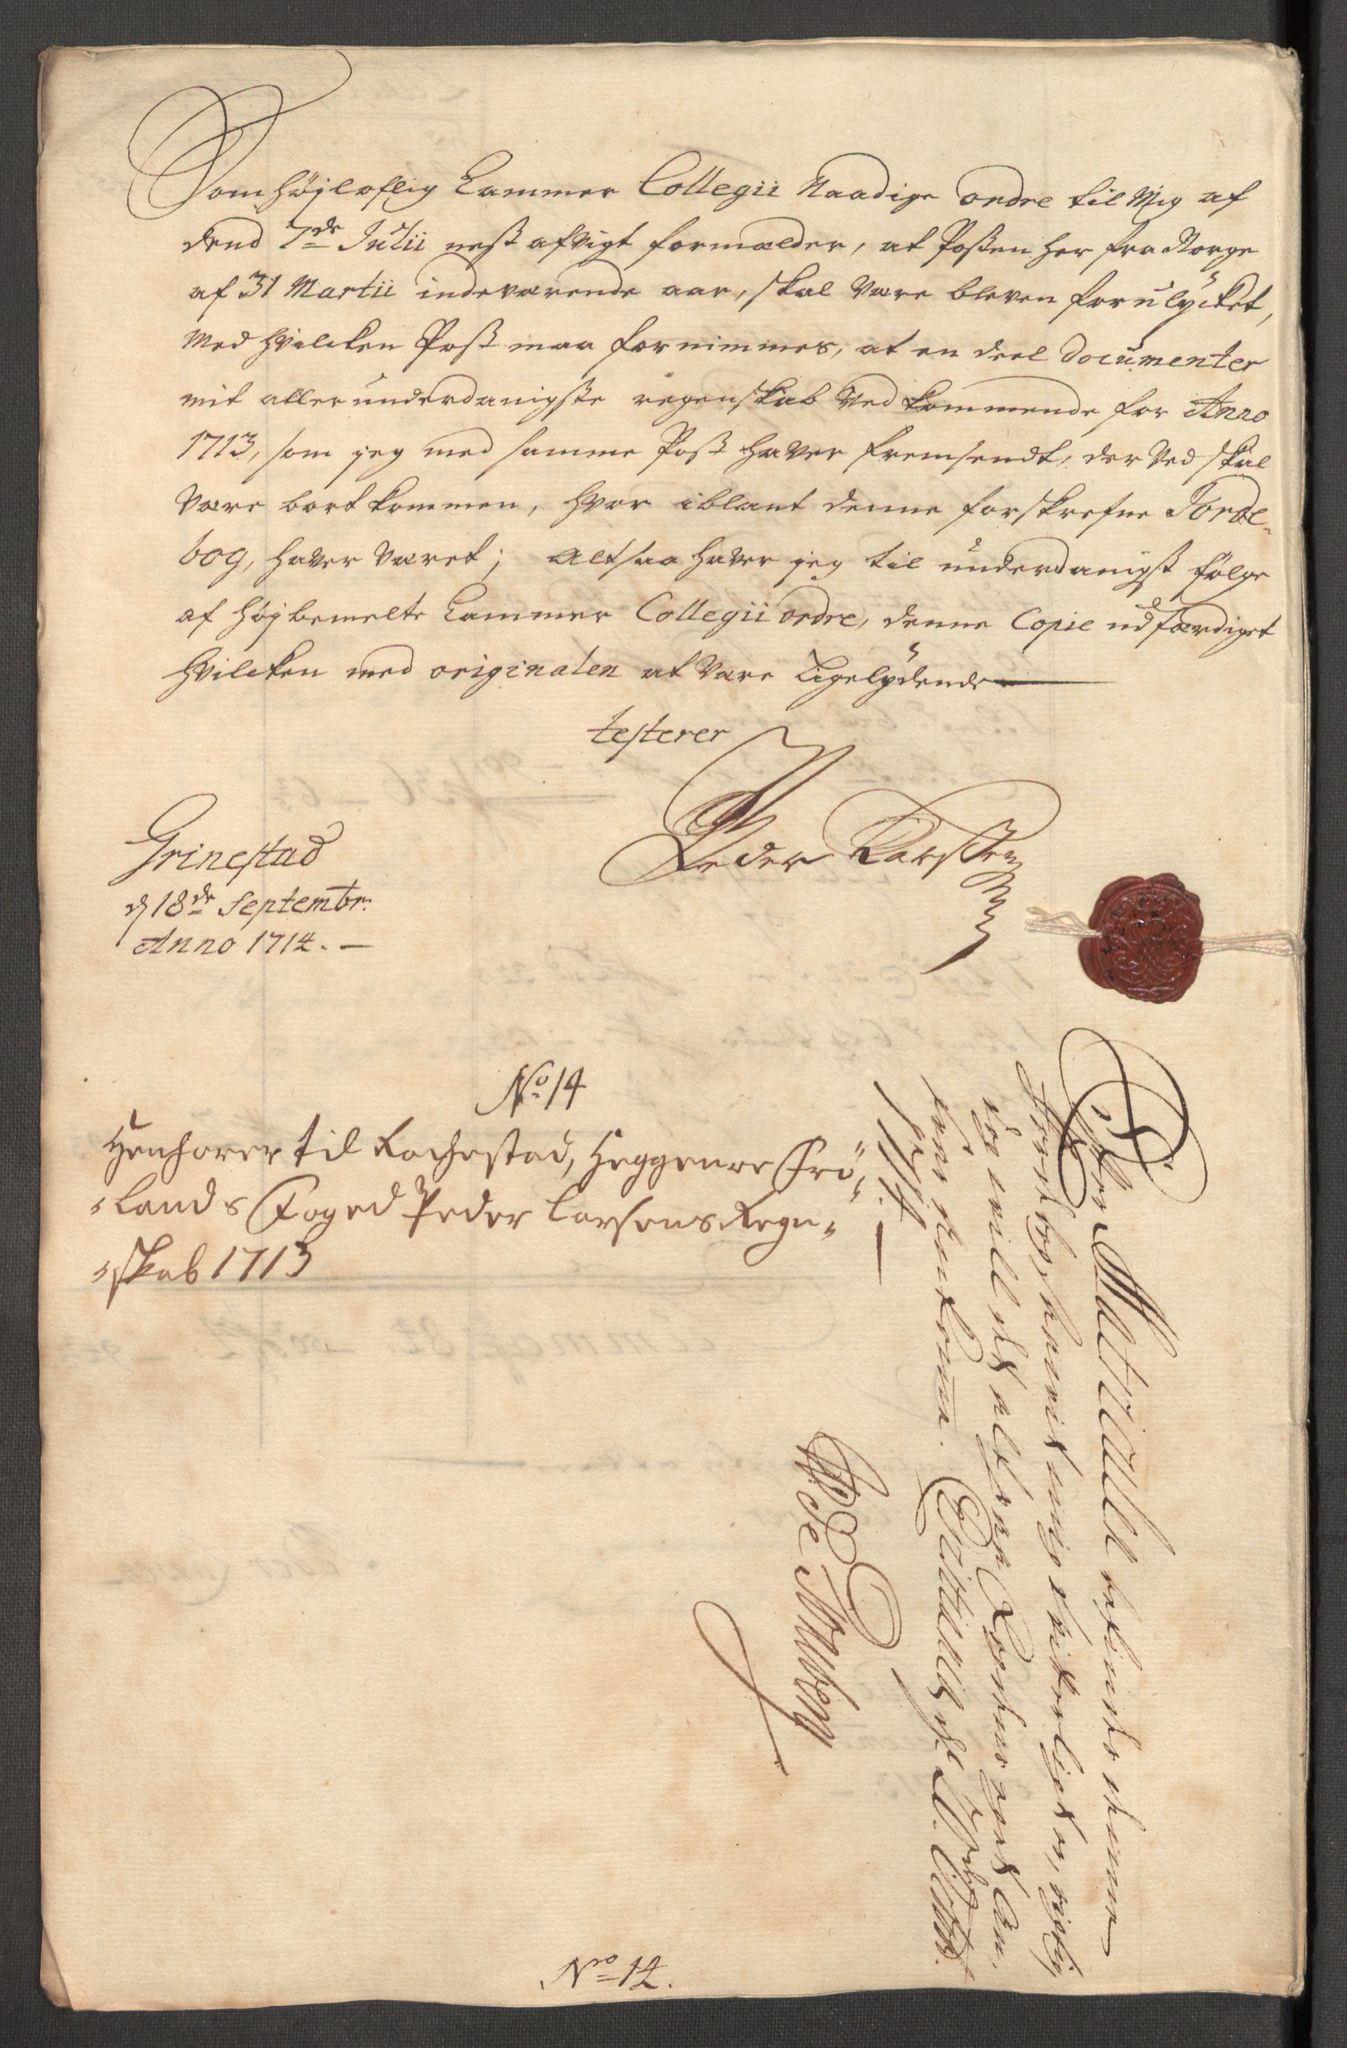 Som höjloflig Cammer Collegii Naadige ordre til Mig af
dend 7de Julii nest afvigt formælder, at Posten her fra Norge
af 31 Martii indeværende aar, skal være bleven forulycket,
med hvilcken Post maa fornimmes, at en deel documenter
mit allerunderdanigste regenskab vedkommende for Anno
1713, som jeg med samme Post haver fremsendt, derved skal
være bortkommen, hvor iblant denne forskrefne Jorde-
bog, haver været; Altsaa haver jeg til underdanigst fölge
af höjbemelte Cammer Collegii ordre, denne Copie udfærdiget
hvilcken med originalen at være Ligelydende
testerer
Peder Larssen
Grinestad
d 18de Septembr.
Anno 1714.
No 14
Henhörer til Rachestad, Heggen og Frö-
lands Foged Peder Larsens Regn-
skab 1713
Matricul befindes denne
Jordebog, saavit mig viderligt er, rigtig
og vill det altsaa
fremkomme.
1714.
No 14.